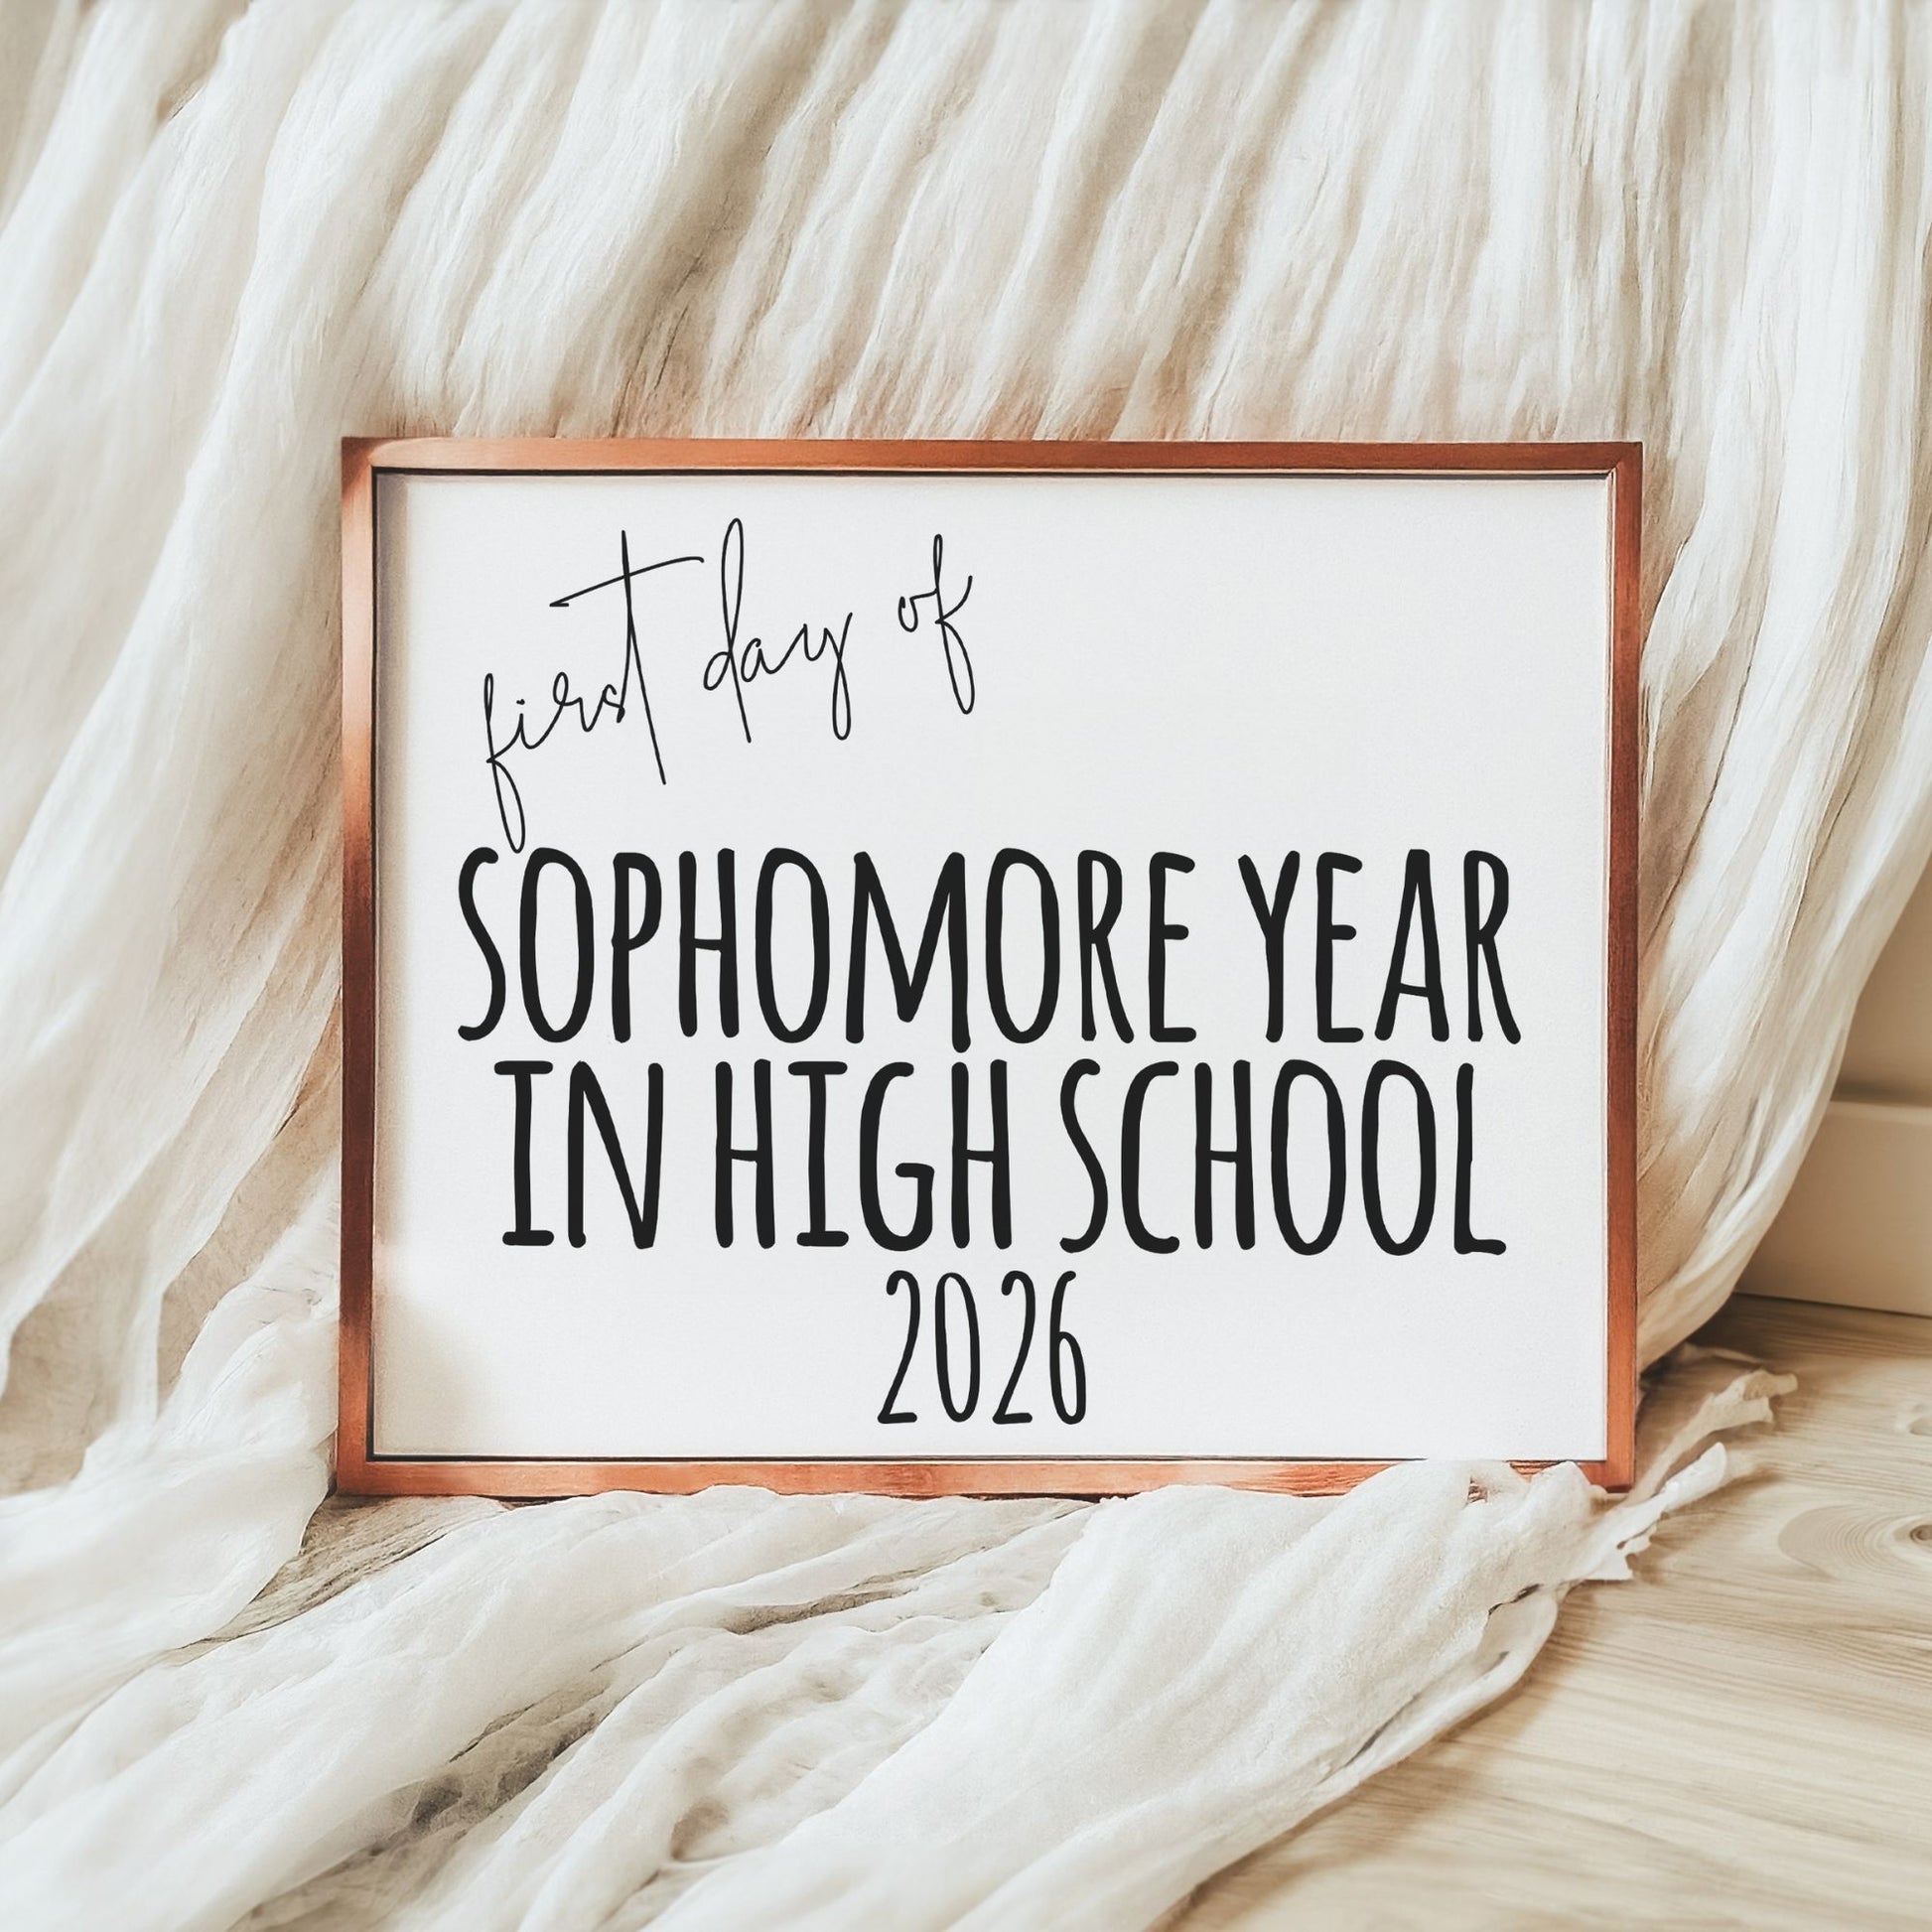 first day of
SOPHOMORE YEAR
IN HIGH SCHOOL
2026